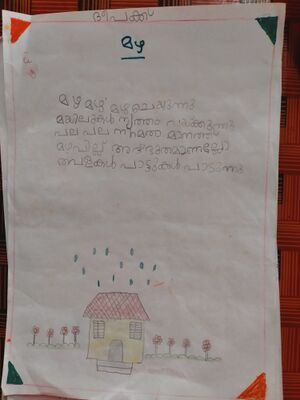 ദീപക്ക്
മഴ
മഴ മഴ മഴ പെയ്യുന്നു
മയിലുകൾ നൃത്തം വയ്ക്കുന്നു
പല പല നിറമതാ മാനത്ത്
മഴവില്ല് അത്ഭുതമാണല്ലോ
തവളകൾ പാട്ടുകൾ പാടുന്നു